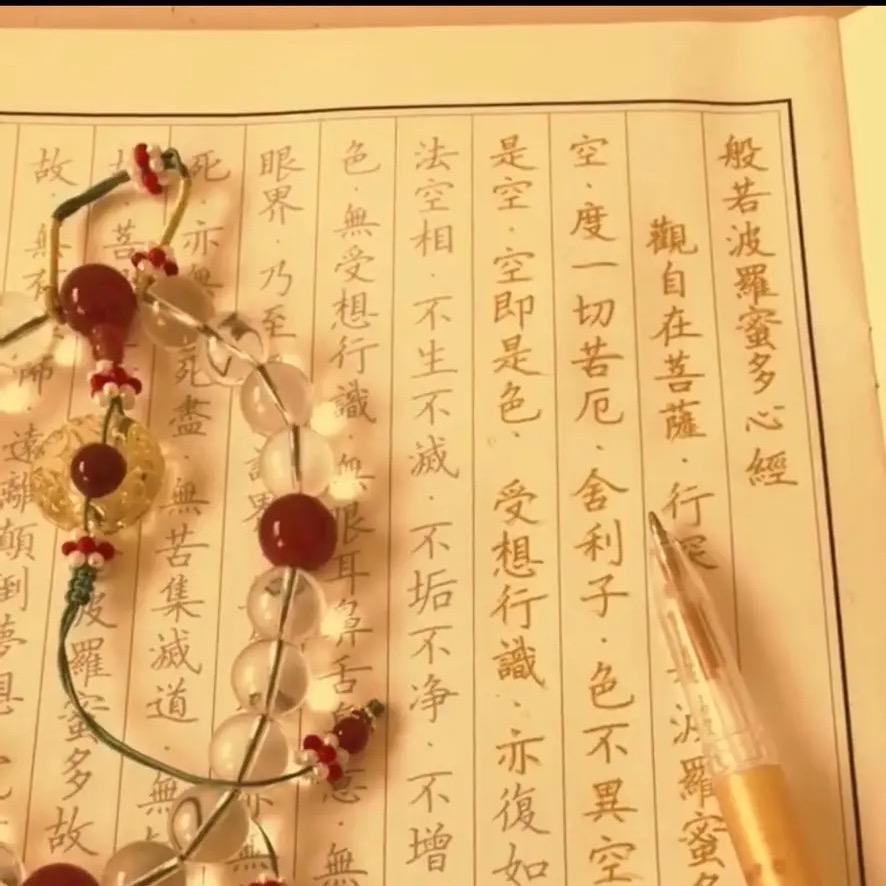 般若波羅蜜多心經
觀自在菩薩．行深 波羅蜜
空．度一切苦厄．舍利子．色不異空
是空．空即是色．受想行識．亦復如
法空相．不生不滅．不垢不净．不增
色．無受想行識．無眼耳鼻舌 意．無
眼界．乃至 界
死．亦無 死盡．無苦集滅道．無
菩 波羅蜜多故
故．無有 遠離顛倒夢想